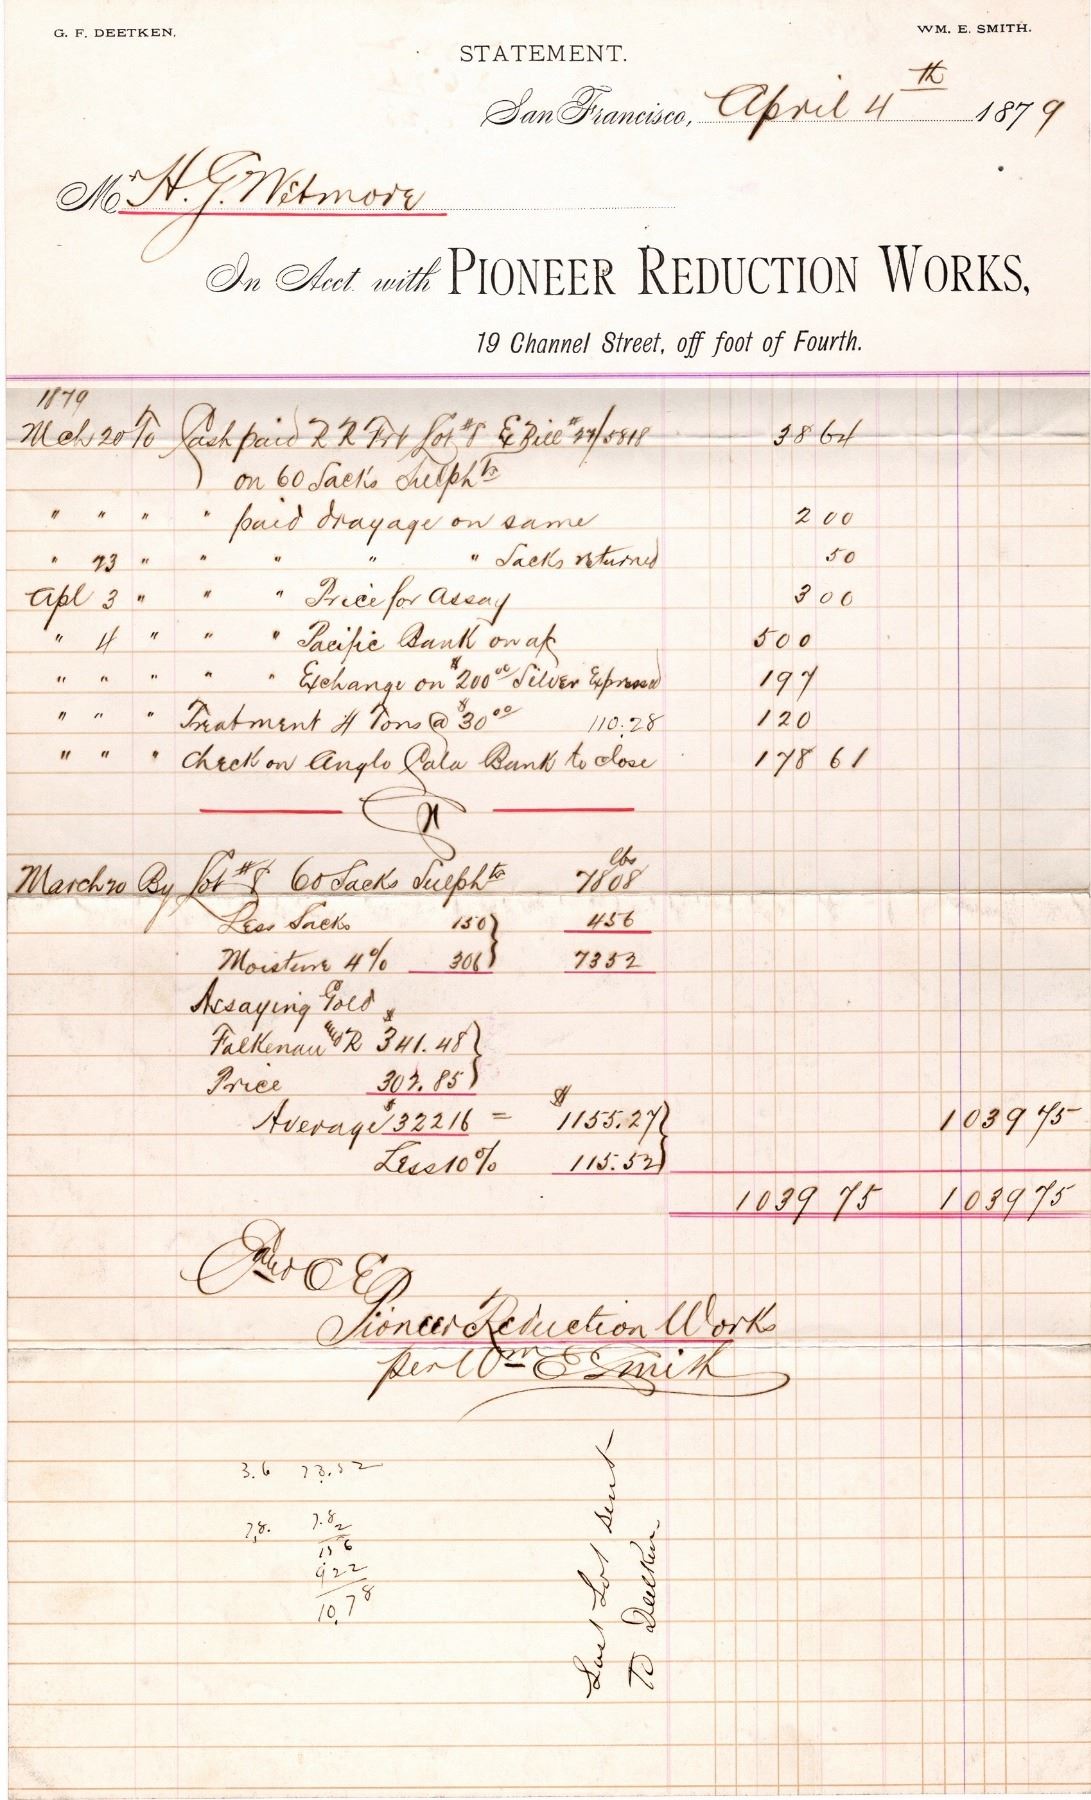 G. F. DEETKEN.
WM. E. SMITH.
STATEMENT.
San Francisco, April 4th 1879
Mr H. G. Wetmore
In Acct. with PIONEER REDUCTION WORKS,
19 Channel Street, off foot of Fourth.
1879
Mch 20 To Cash paid R R Frt Lot #8 Ex Bill #27/5818 38 64
on 60 Sacks Sulphts
" " " " paid drayage on same 2 00
" 23 " " " " " Sacks returned 50
Apl 3 " " " Price for Assay 3 00
" 4 " " " Pacific Bank on a/c 500
" " " " " Exchange on $200.00 Silver Expressed 1 97
" " " Treatment 4 Tons @ $30.00 110.28 120
" " " Check on Anglo Cala Bank to close 178 61
March 20 By Lot #8 60 Sacks Sulphts 7808 lbs
Less Sacks 150 456
Moisture 4% 306 7352
Assaying Gold
Falkenau & R $341.48
Price 302.85
Average $322 16 = $1155.27 1039 75
Less 10% 115.52
1039 75 1039 75
E O E
Pioneer Reduction Works
per Wm E Smith
3.6 73.52
7.8. 7.82
156
922
10.78
Last Lot sent
To